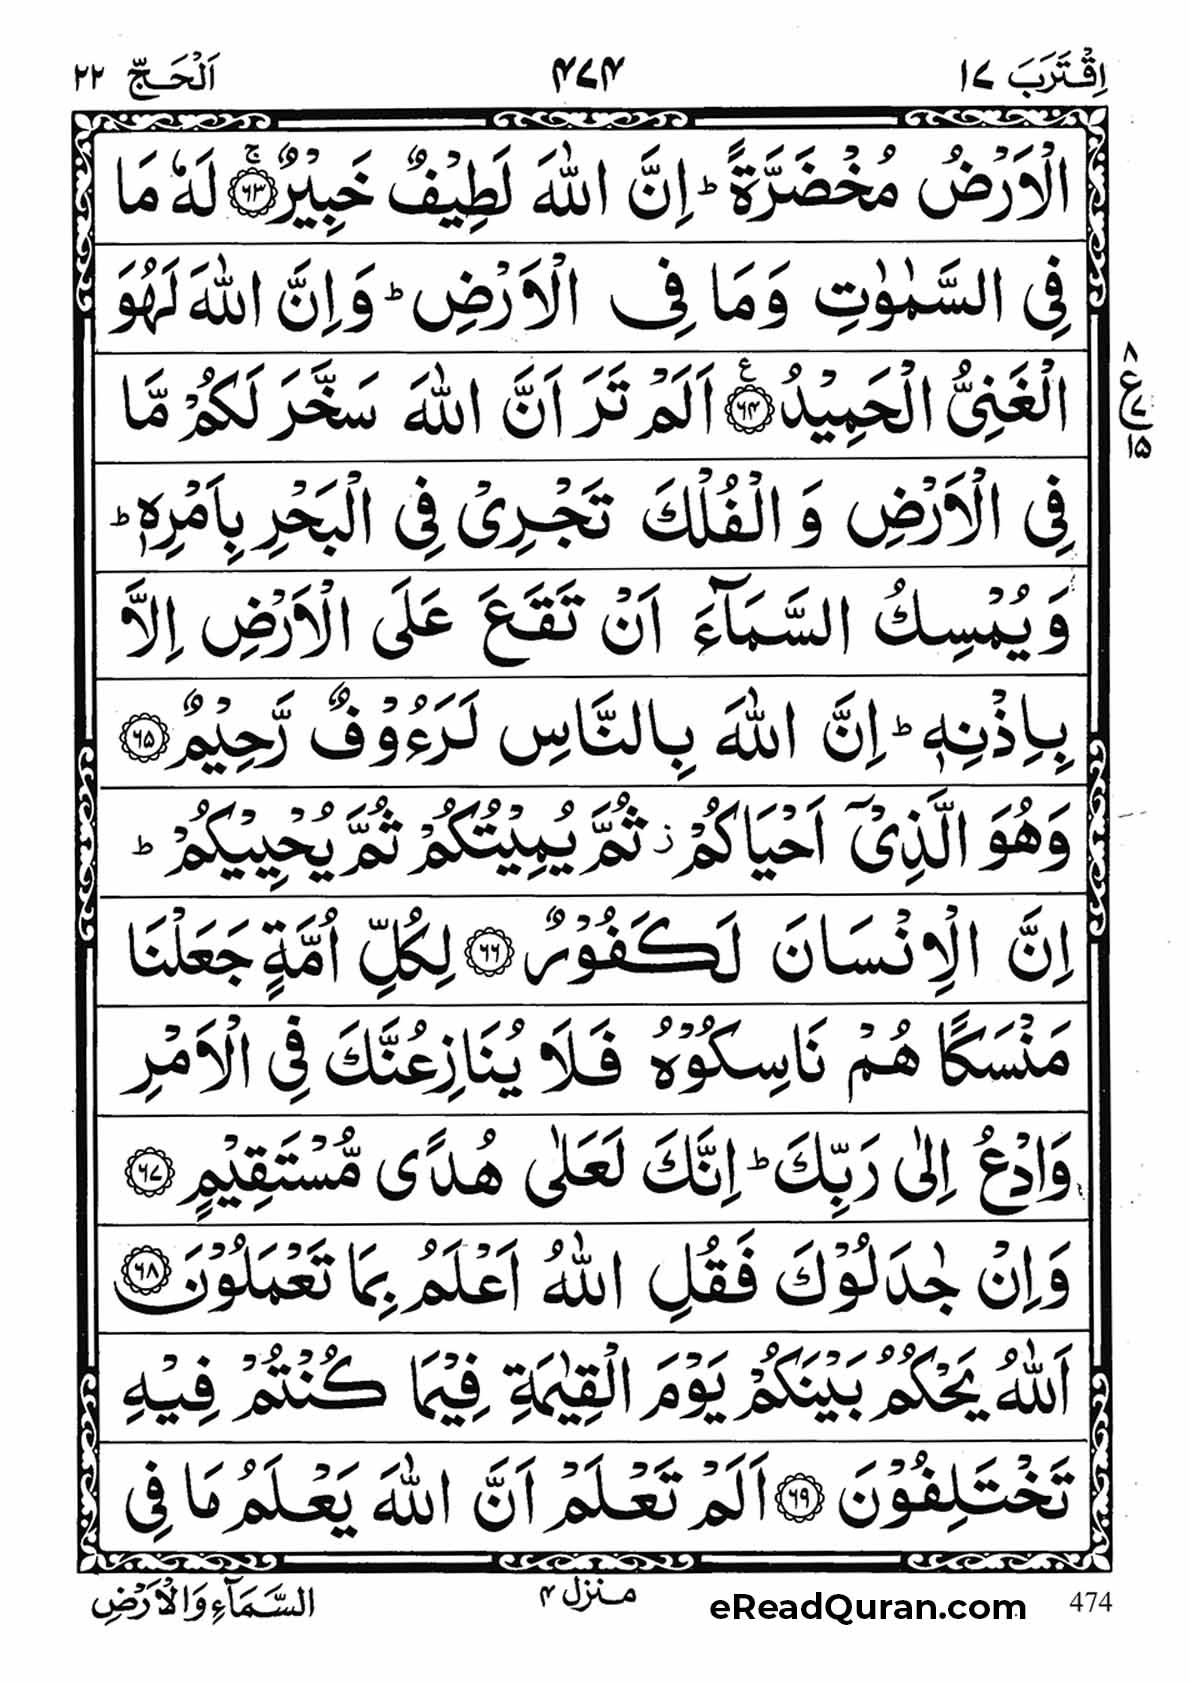 اِقْتَرَبَ ١٧ ۴٧۴ اَلْحَجّ ٢٢
الْاَرْضُ مُخْضَرَّةً ؕ اِنَّ اللّٰهَ لَطِيْفٌ خَبِيْرٌ ۚ ﴿٦٣﴾ لَهٗ مَا
فِى السَّمٰوٰتِ وَمَا فِى الْاَرْضِ ؕ وَاِنَّ اللّٰهَ لَهُوَ
الْغَنِىُّ الْحَمِيْدُ ﴿٦۴﴾ ع اَلَمْ تَرَ اَنَّ اللّٰهَ سَخَّرَ لَكُمْ مَّا
٨ ع ٧ ١٥
فِى الْاَرْضِ وَالْفُلْكَ تَجْرِىْ فِى الْبَحْرِ بِاَمْرِهٖ ؕ
وَيُمْسِكُ السَّمَآءَ اَنْ تَقَعَ عَلَى الْاَرْضِ اِلَّا
بِاِذْنِهٖ ؕ اِنَّ اللّٰهَ بِالنَّاسِ لَرَءُوْفٌ رَّحِيْمٌ ﴿٦٥﴾
وَهُوَ الَّذِىْۤ اَحْيَاكُمْ ز ثُمَّ يُمِيْتُكُمْ ثُمَّ يُحْيِيْكُمْ ؕ
اِنَّ الْاِنْسَانَ لَكَفُوْرٌ ﴿٦٦﴾ لِكُلِّ اُمَّةٍ جَعَلْنَا
مَنْسَكًا هُمْ نَاسِكُوْهُ فَلَا يُنَازِعُنَّكَ فِى الْاَمْرِ
وَادْعُ اِلٰى رَبِّكَ ؕ اِنَّكَ لَعَلٰى هُدًى مُّسْتَقِيْمٍ ﴿٦٧﴾
وَاِنْ جٰدَلُوْكَ فَقُلِ اللّٰهُ اَعْلَمُ بِمَا تَعْمَلُوْنَ ﴿٦٨﴾
اَللّٰهُ يَحْكُمُ بَيْنَكُمْ يَوْمَ الْقِيٰمَةِ فِيْمَا كُنْتُمْ فِيْهِ
تَخْتَلِفُوْنَ ﴿٦٩﴾ اَلَمْ تَعْلَمْ اَنَّ اللّٰهَ يَعْلَمُ مَا فِى
474 eReadQuran.com منزل ۴ السَّمَآءِ وَالْاَرْضِ